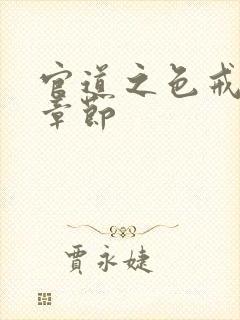 官道之色戒
章節
賈永婕